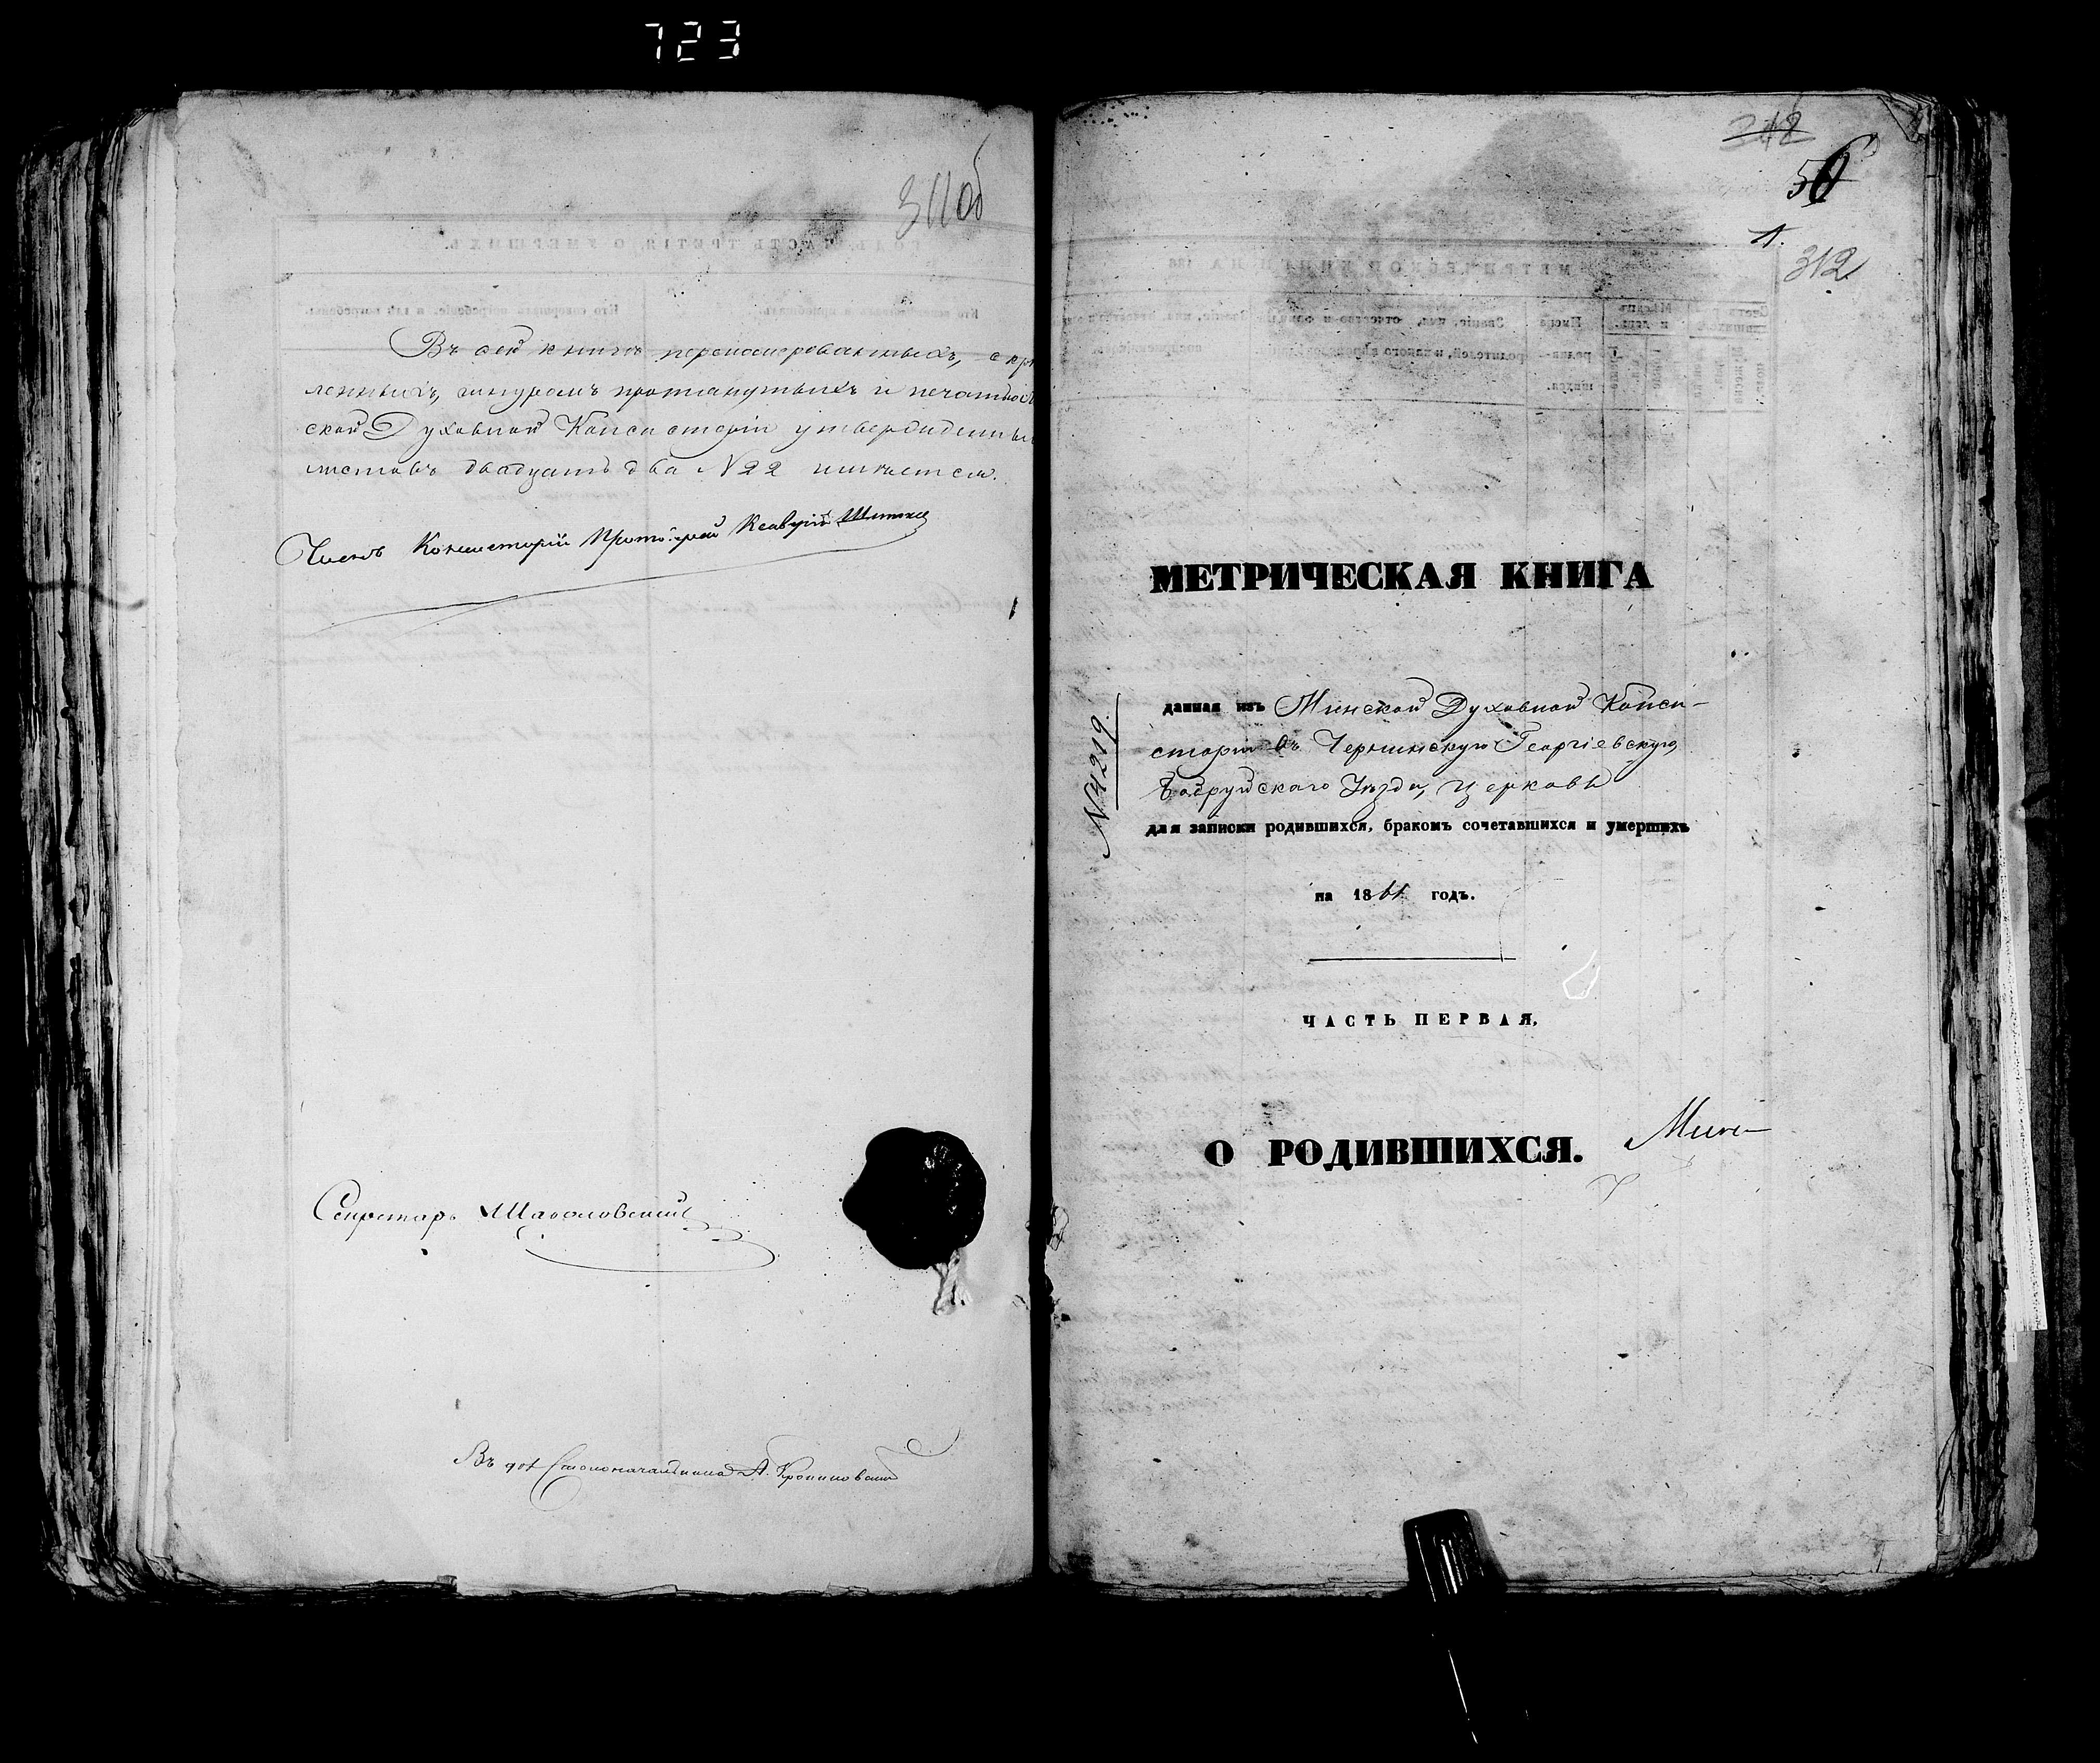 723
311об
Въ сей книгѣ перенумерованныхъ, скрѣ
ленныхъ, шнуромъ протянутыхъ и печатью
ской Духовной Консисторіи утвержденны
листовъ двадцать два №22 имѣется.
Членъ Консисторіи Протоіерей
Секретарь
Въ дол Столоначальника А.
242
56
1.
312
МЕТРИЧЕСКАЯ КНИГА
№4219.
данная изъ Минской Духовной Конси-
сторіи въ Чернинскую Георгіевскую,
Бобруйскаго Уѣзда, Церковь
для записки родившихся, бракомъ сочетавшихся и умершихъ
на 1861 годъ.
ЧАСТЬ ПЕРВАЯ,
О РОДИВШИХСЯ.
Мин-